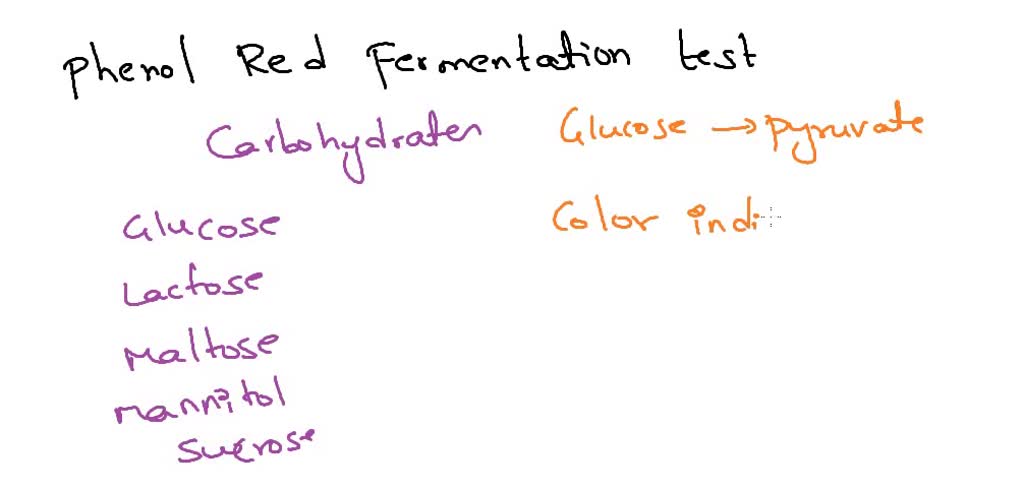 Phenol Red Fermentation test
Carbohydrates
Glucose → pyruvate
Glucose
Color indi
Lactose
Maltose
Mannitol
Sucrose